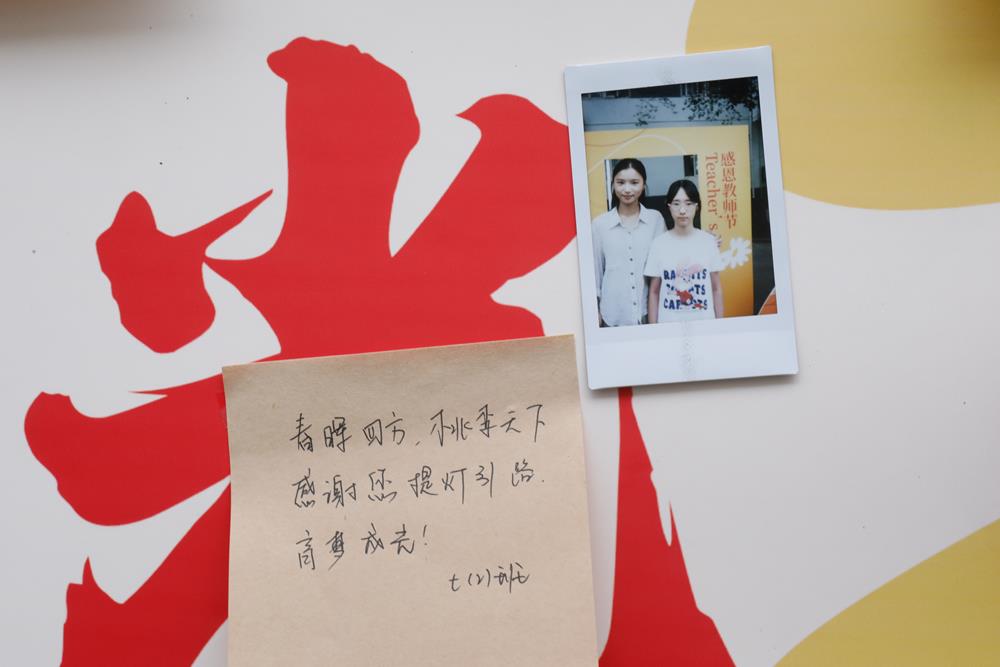 感恩教师节
Teacher's
春晖四方,桃李天下
感谢您提灯引路.
育梦成光!
七(2)班